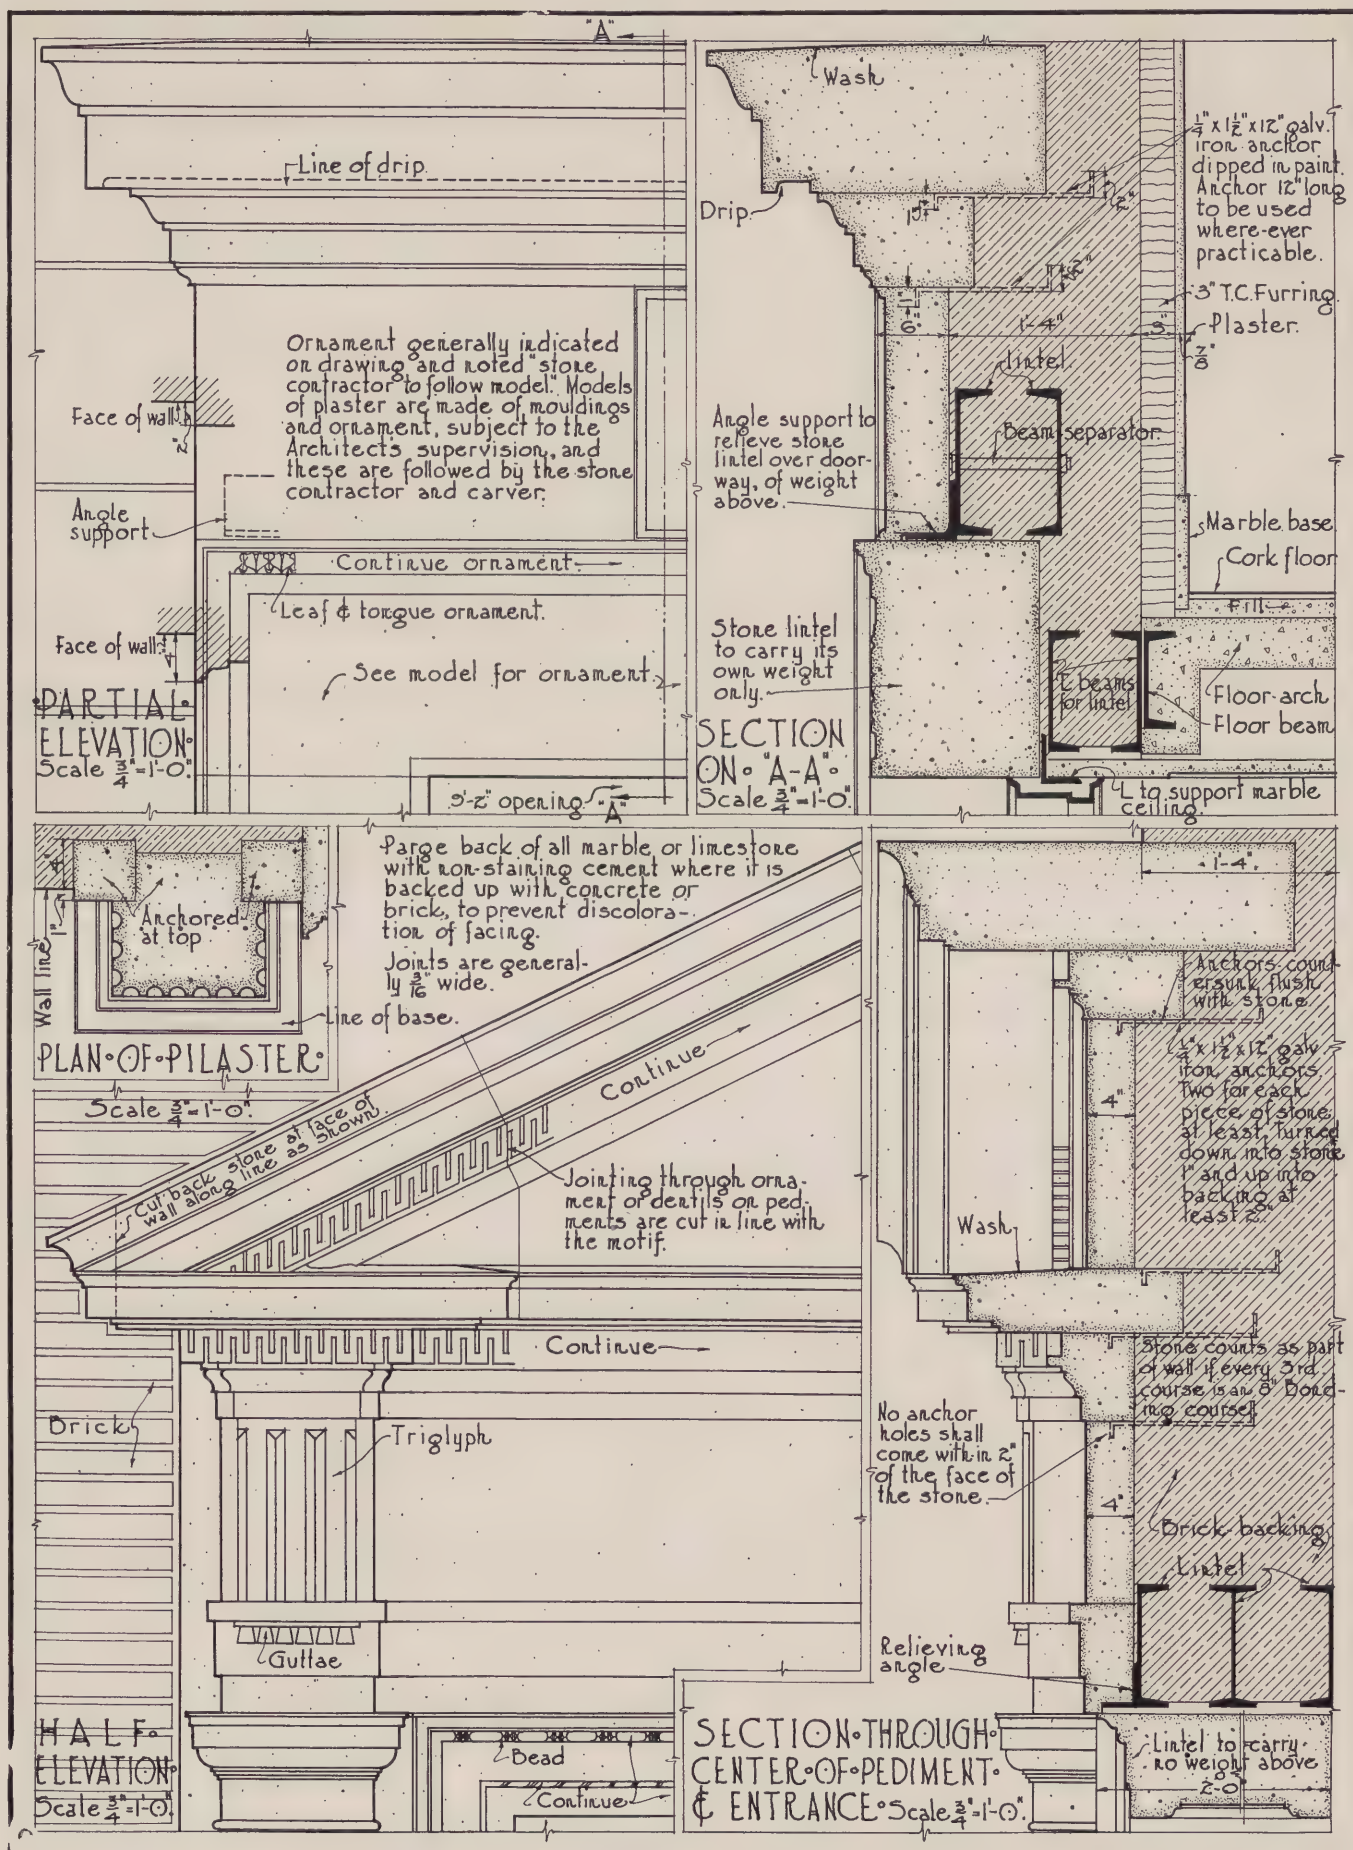 "A"
Line of drip.
Ornament generally indicated
on drawing and noted "stone
contractor to follow model." Models
of plaster are made of mouldings
and ornament, subject to the
Architect's supervision, and
these are followed by the stone
contractor and carver.
Face of wall
2"
Angle
support
Continue ornament.
Leaf & tongue ornament.
Face of wall.
4"
See model for ornament.
PARTIAL
ELEVATION
Scale 3/4"=1'-0".
9'-2" opening.
"A"
Wash
Drip.
1"
2"
1/4" x 1 1/2" x 12" galv.
iron anchor
dipped in paint.
Anchor 12" long
to be used
where-ever
practicable.
2"
1"
3" T.C. Furring.
Plaster.
7/8"
6"
1'-4"
3"
Lintel.
Beam separator.
Angle support to
relieve stone
lintel over door-
way, of weight
above.
Marble base
Cork floor
Fill
Stone lintel
to carry its
own weight
only.
beams
for lintel
Floor-arch
Floor beam
SECTION
ON "A-A"
Scale 3/4"=1'-0".
L to support marble
ceiling.
4"
1"
Anchored
at top
Wall line
Line of base.
PLAN·OF·PILASTER·
Scale 3/4"=1'-0".
Parge back of all marble or limestone
with non-staining cement where it is
backed up with concrete or
brick, to prevent discolora-
tion of facing.
Joints are general-
ly 3/16" wide.
Continue
Cut back stone at face of
wall along line as shown.
Jointing through orna-
ment or dentils on ped-
ments are cut in line with
the motif.
Continue
Brick
Triglyph
Guttae
Bead
Continue
HALF·
ELEVATION·
Scale 3/4"=1'-0".
1'-4".
Anchors count-
ersunk flush
with stone.
1/4" x 1 1/2" x 12" galv
iron anchors.
Two for each
piece of stone
at least. Turned
down into stone
1" and up into
backing at
least 2".
4"
Wash
Stone counts as part
of wall if every 3rd
course is an 8" Bond-
ing course.
No anchor
holes shall
come with-in 2"
of the face of
the stone.
4"
Brick backing
Lintel
Relieving
angle
Lintel to carry
no weight above
2'-0"
SECTION·THROUGH·
CENTER·OF·PEDIMENT·
& ENTRANCE· Scale 3/4"=1'-0".